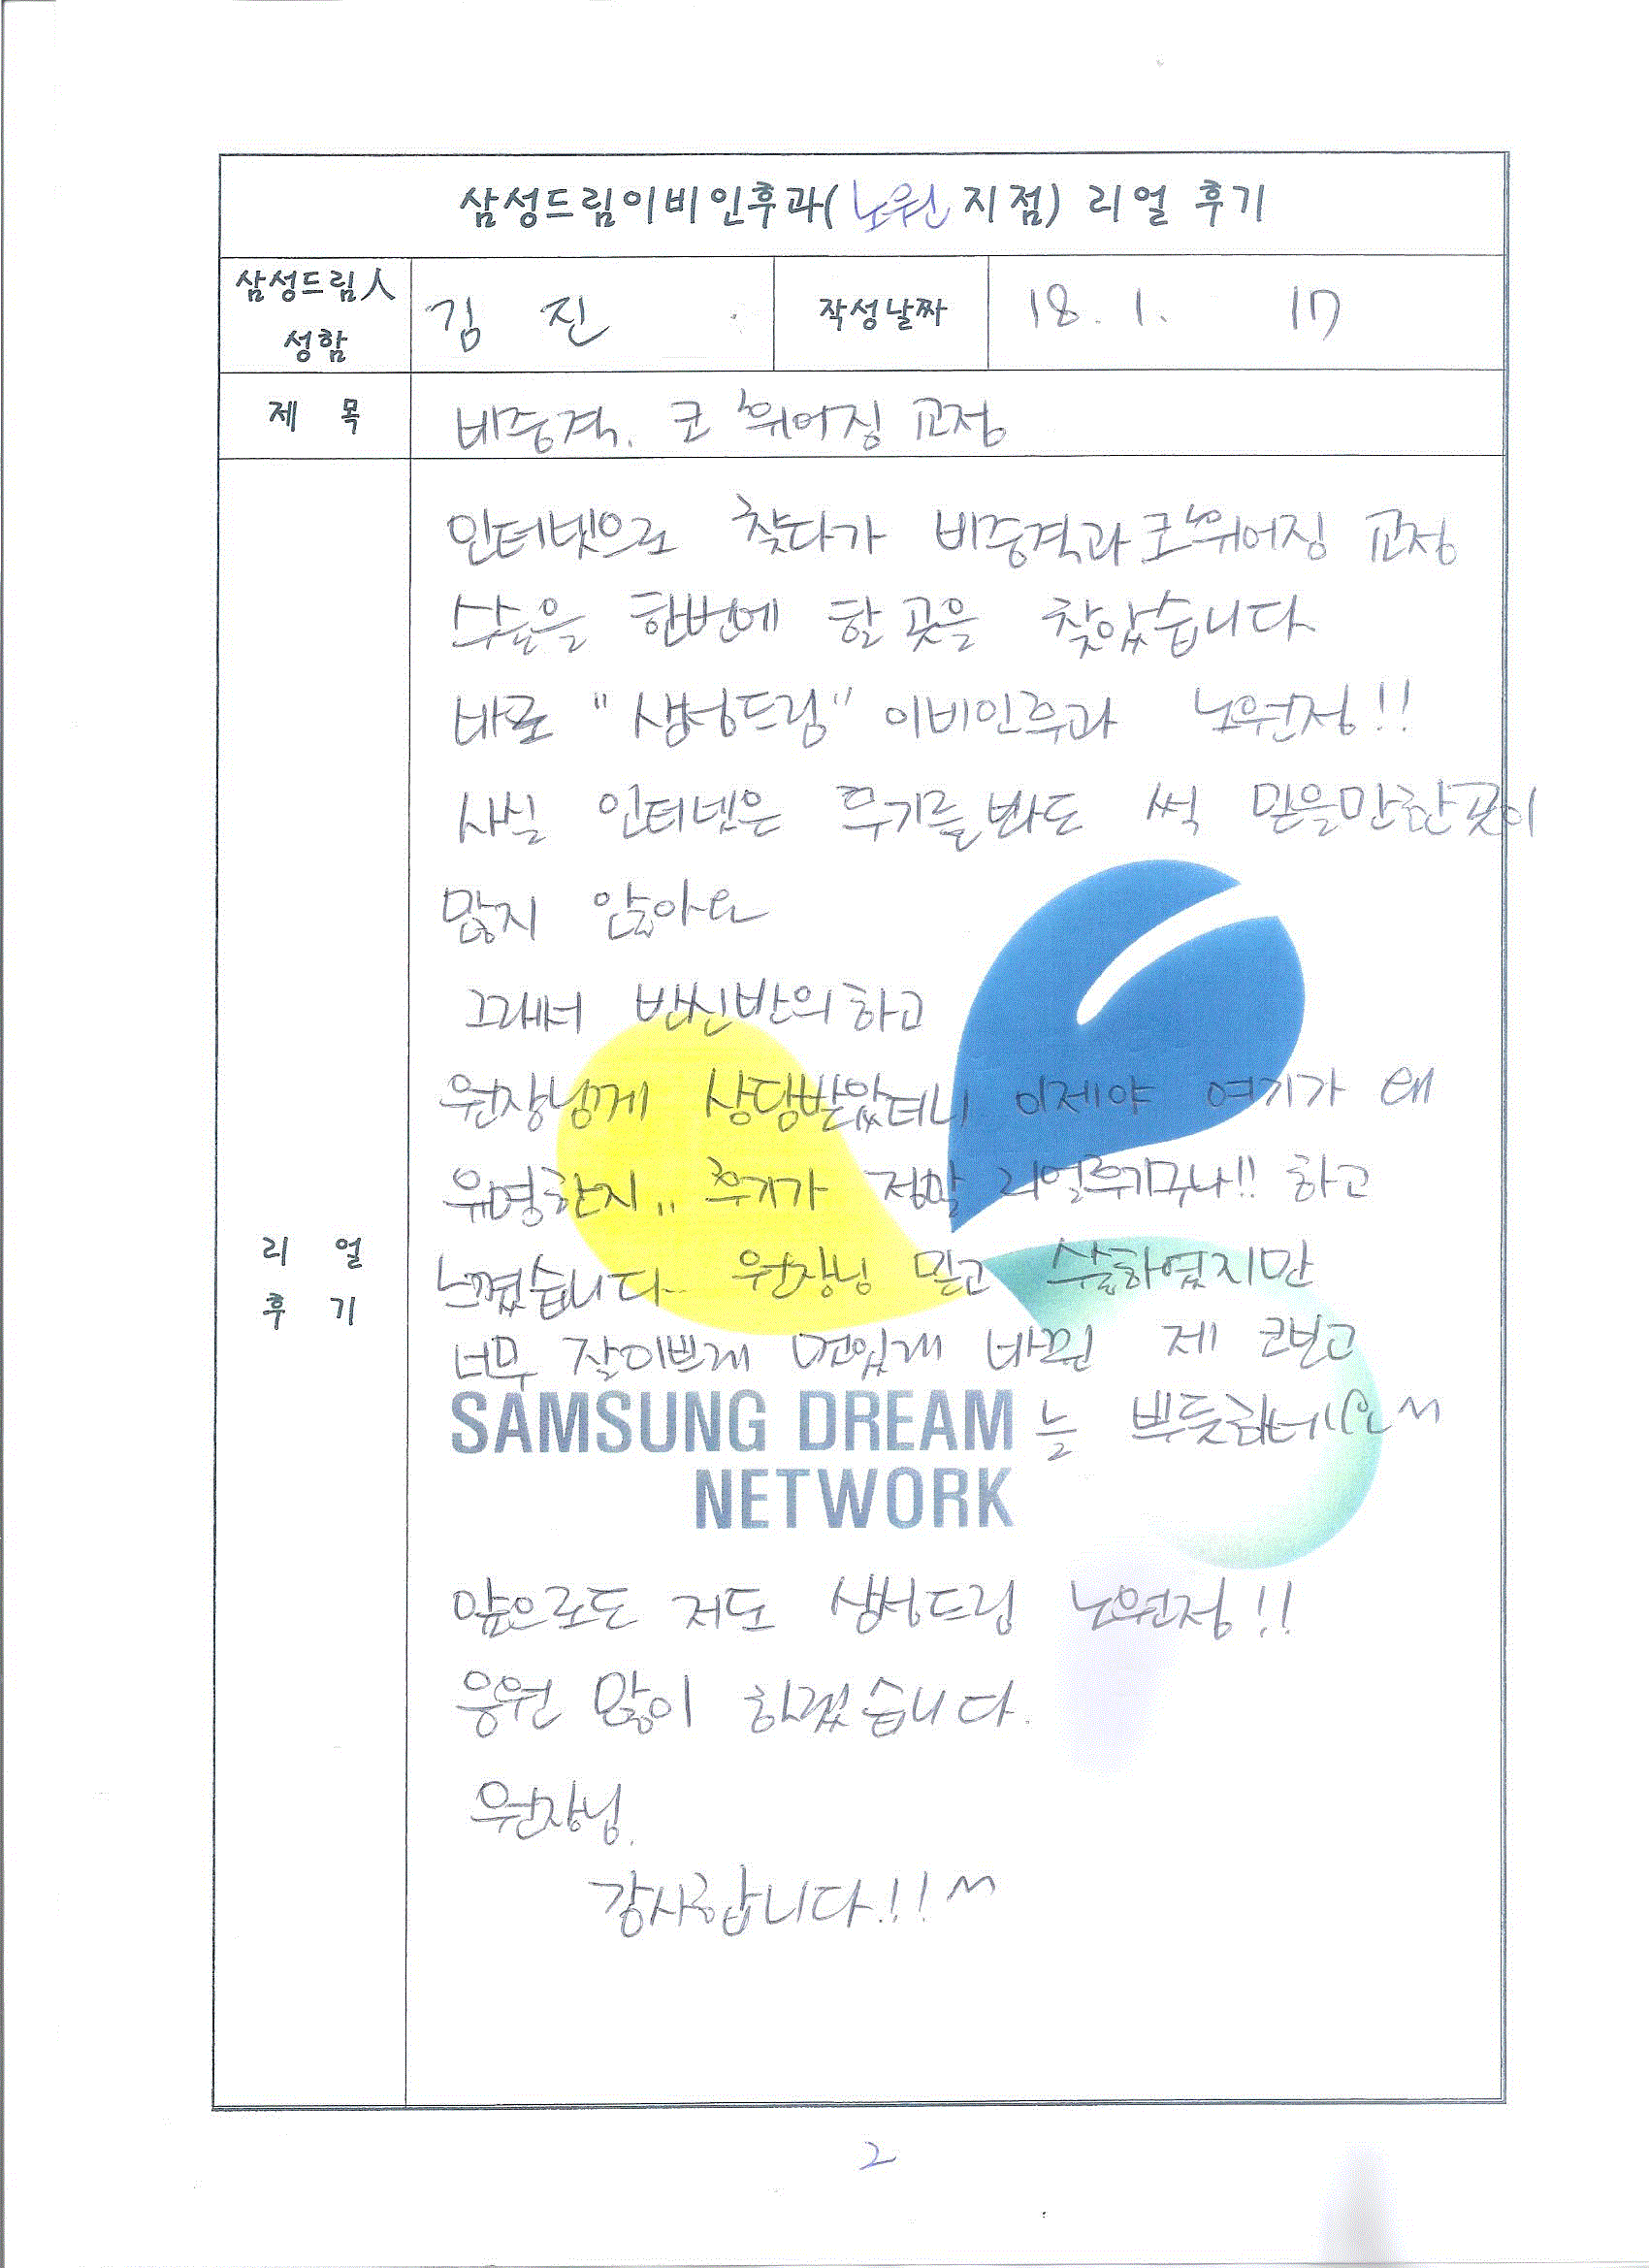 삼성드림이비인후과(노원 지점) 리얼 후기
삼성드림人 성함
김 진
작성날짜
18. 1. 17
제 목
비중격. 코 휘어짐 교정
인터넷으로 찾다가 비중격과 코 휘어짐 교정
수술을 한번에 할 곳을 찾았습니다
바로 "삼성드림" 이비인후과 노원점!!
사실 인터넷은 후기를 봐도 썩 믿을만한곳이
많지 않아요
그래서 반신반의하고
원장님께 상담받았더니 이제야 여기가 왜
유명한지.. 후기가 정말 리얼후기구나!! 하고
리 얼
후 기
느꼈습니다.. 원장님 믿고 수술하였지만
너무 잘이쁘게 멋있게 바뀐 제 코보고
SAMSUNG DREAM
늘 뿌듯
NETWORK
앞으로도 저도 삼성드림 노원점!!
응원 많이 하겠습니다.
원장님.
감사합니다!! ^^
2